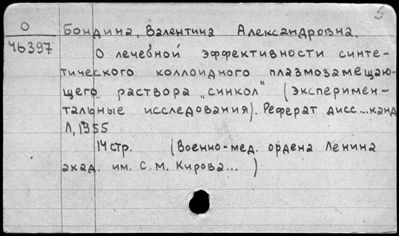 О
46397
Бондина, Валентина Александровна.
О лечебной эффективности синте-
тического коллоидного плазмозамещаю-
щего раствора „синкол" (Эксперимен-
тальные исследования). Реферат дисс...канд
Л, 1955
14 стр. (Военно-мед. ордена Ленина
акад. им. С.М. Кирова... )